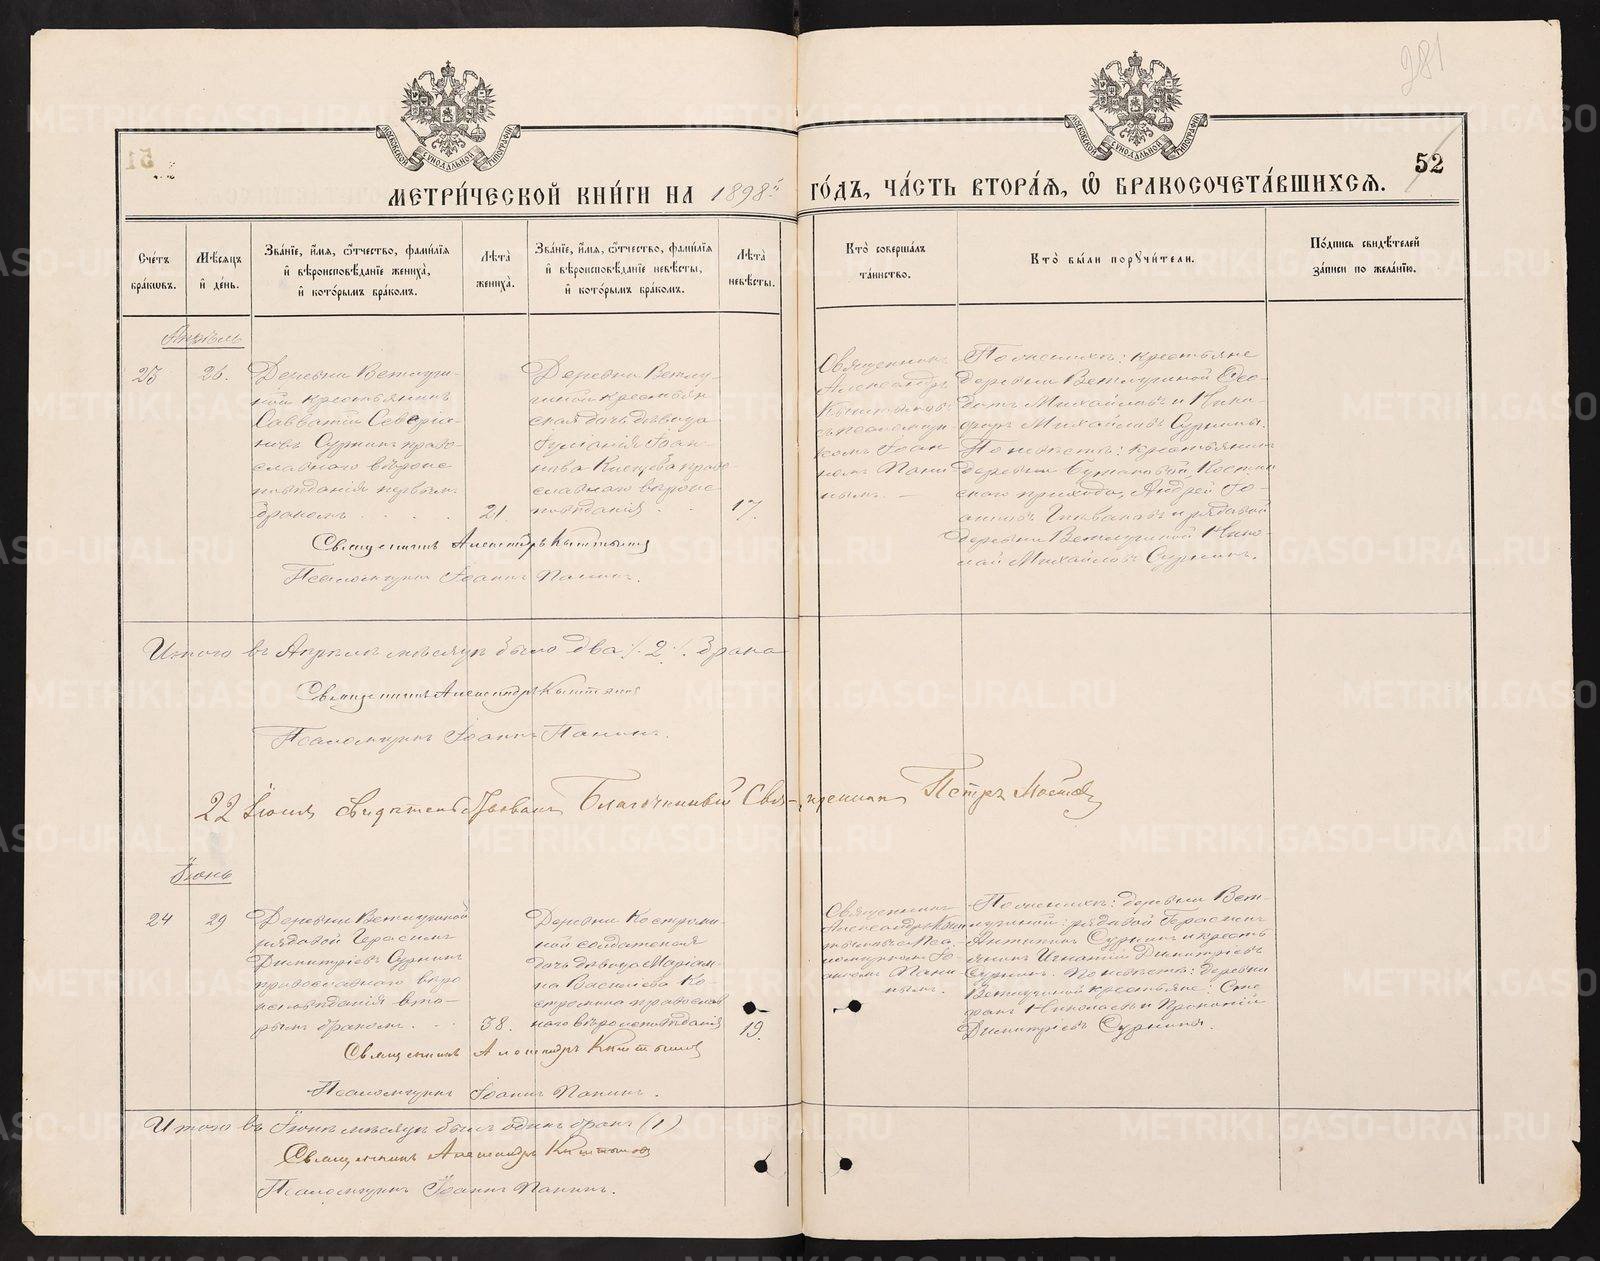 281
52
МОСКОВСКОЙ СѴНОДАЛЬНОЙ ТИПОГРАФІИ
МОСКОВСКОЙ СѴНОДАЛЬНОЙ ТИПОГРАФІИ
МЕТРИ́ЧЕСКОЙ КНИ́ГИ НА 1898й ГО́ДЪ, ЧА́СТЬ ВТОРА́Я, Ѡ҆ БРАКОСОЧЕТА́ВШИХСЯ.
Сче́тъ бра́ковъ.
Мѣ́сяцъ и҆ де́нь.
Зва́нїе, и҆́мя, ѻ҆́тчество, фами́лїя и҆ вѣроисповѣ́данїе жениха̀, и҆ кото́рымъ бра́комъ.
Лѣ́та жениха̀.
Зва́нїе, и҆́мя, ѻ҆́тчество, фами́лїя и҆ вѣроисповѣ́данїе невѣ́сты, и҆ кото́рымъ бра́комъ.
Лѣ́та невѣ́сты.
Кто̀ соверша́лъ та́инство.
Кто̀ бы́ли порꙋчи́тели.
По́дпись свидѣ́телей за́писи по жела́нїю.
Апрѣль
23
26.
Деревни Ветлуги-
ной крестьянинъ
Савватій Северіа-
новъ Суринъ право-
славнаго вѣроис
повѣданія первымъ
бракомъ
21.
Деревни Ветлу-
гиной крестьян
ская дочь дѣвица
Іуліанія Іоан-
нова право-
славнаго вѣроис
повѣданія
17.
Священникъ
Александръ
съ псаломщи
комъ Іоан
номъ Пани
нымъ.
По женихѣ: крестьяне
деревни Ветлугиной Ѳео-
дотъ Михайловъ и Ники-
форъ Михайловъ Сурины.
По невѣстѣ: крестьянинъ
деревни
скаго прихода, Андрей Іо-
анновъ и рядовой
деревни Ветлугиной Нико
лай Михайловъ Суринъ.
Священникъ Александръ
Псаломщикъ Іоаннъ Панинъ.
Итого въ Апрѣлѣ мѣсяцѣ было два /. 2 /. брака
Священникъ Александръ
Псаломщикъ Іоаннъ Панинъ.
22 Іюня Благочинный Священникъ Петръ
Іюнь
24
29
Деревни Ветлугиной
рядовой Герасимъ
Димитріевъ Суринъ
православнаго вѣро
исповѣданія вто-
рымъ бракомъ.
38.
Деревни Костроми-
ной солдатская
дочь дѣвица Маріам-
на Василева Ко-
стромина православ
наго вѣроисповѣданія
19.
Священникъ
Александръ
съ Пса-
ломщикомъ Іо-
анномъ Пани-
нымъ.
По женихѣ: деревни Вет-
лугиной: рядовой Герасимъ
Антипинъ Суринъ и кресть
янинъ Игнатій Димитріевъ
Суринъ. По невѣстѣ: деревни
Ветлугиной крестьяне: Сте
фанъ Николаевъ и Прокопій
Димитріевъ Сурины.
Священникъ Александръ
Псаломщикъ Іоаннъ Панинъ.
Итого въ Іюнѣ мѣсяцѣ былъ одинъ бракъ (1)
Священникъ Александръ
Псаломщикъ Іоаннъ Панинъ.
METRIKI.GASO-URAL.RU